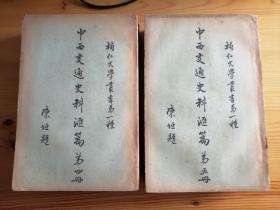 輔仁大學叢書第一種
中西交通史料滙篇第四册
陳垣題
輔仁大學叢書第一種
中西交通史料滙篇第五册
陳垣題